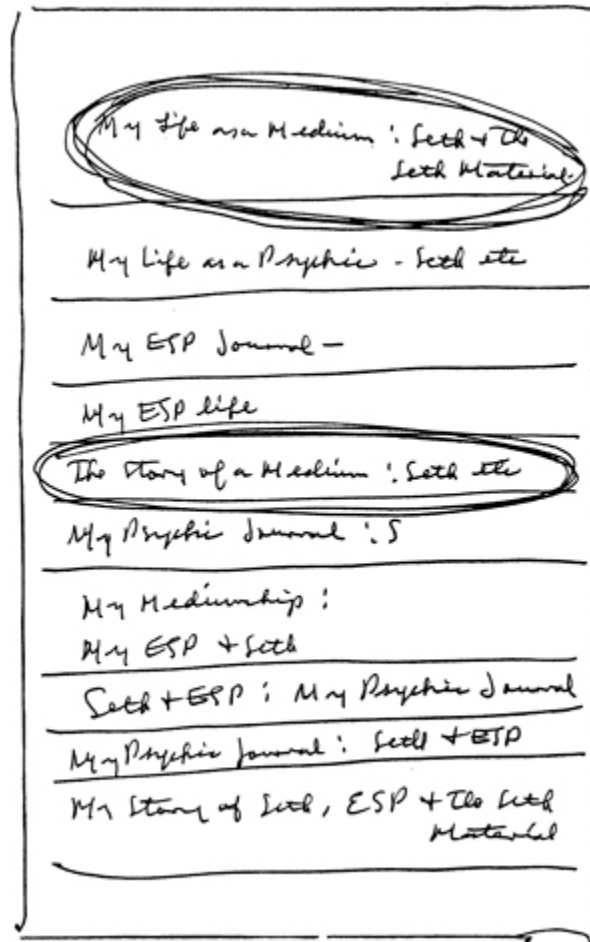 My Life as a Medium : Seth & The
Seth Material.
My Life as a Psychic - Seth etc
My ESP Journal -
My ESP life
The Story of a Medium : Seth etc
My Psychic Journal : S
My Mediumship :
My ESP & Seth
Seth & ESP : My Psychic Journal
My Psychic Journal : Seth & ESP
My Story of Seth, ESP & The Seth
Material